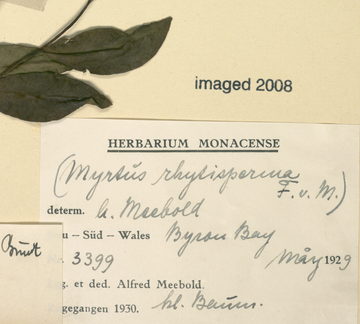 imaged 2008
HERBARIUM MONACENSE
(Myrtus rhytisperma
F. v. M.)
determ. A. Meebold
u – Süd – Wales Byron Bay
3399 May 1929
g. et ded. Alfred Meebold.
gegangen 1930. kl. Baum.